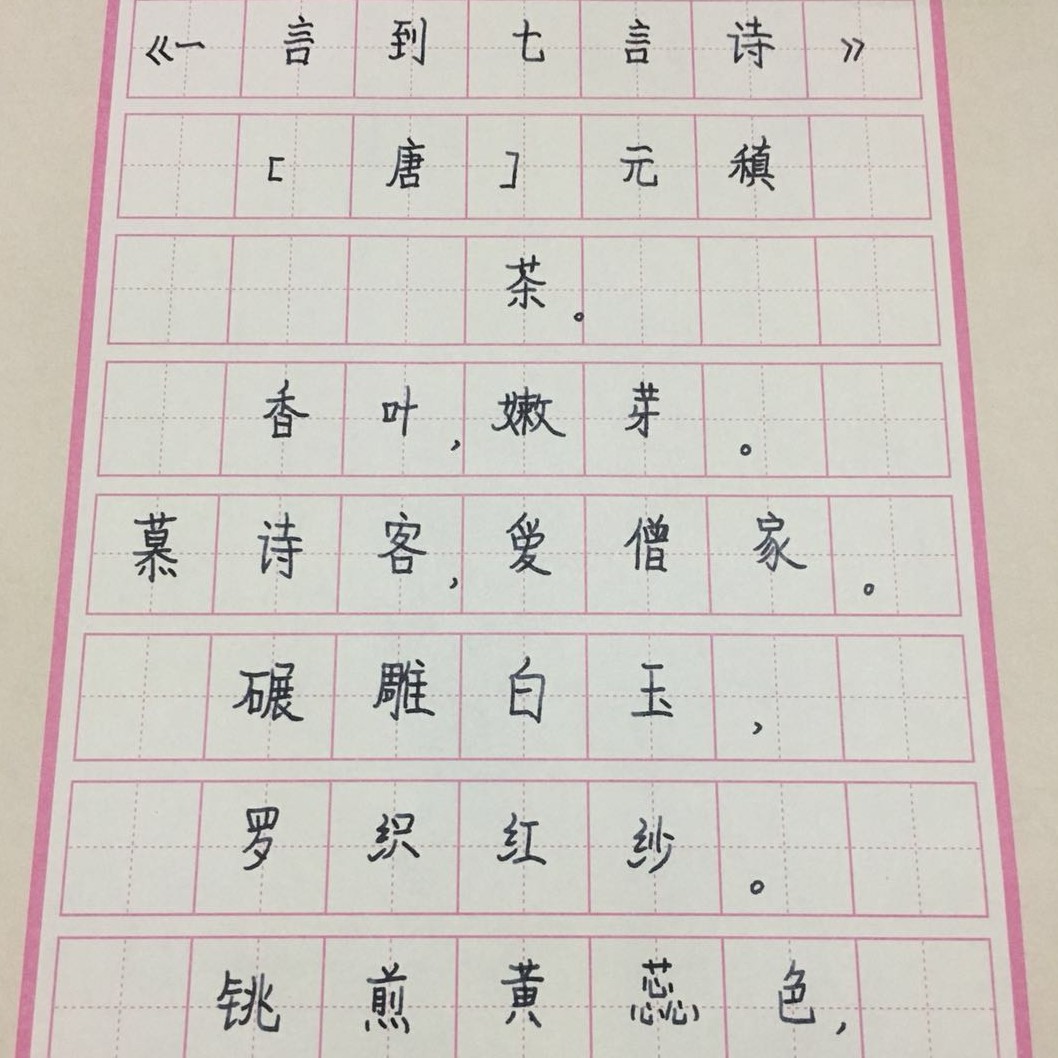 《一言到七言诗》
[唐]元稹
茶。
香叶,嫩芽。
慕诗客,爱僧家。
碾雕白玉,
罗织红纱。
铫煎黄蕊色,